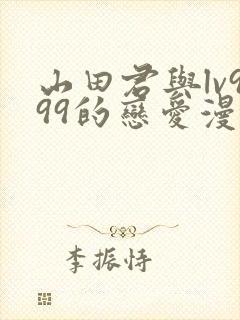 山田君與lv9
99的戀愛漫
李振恃